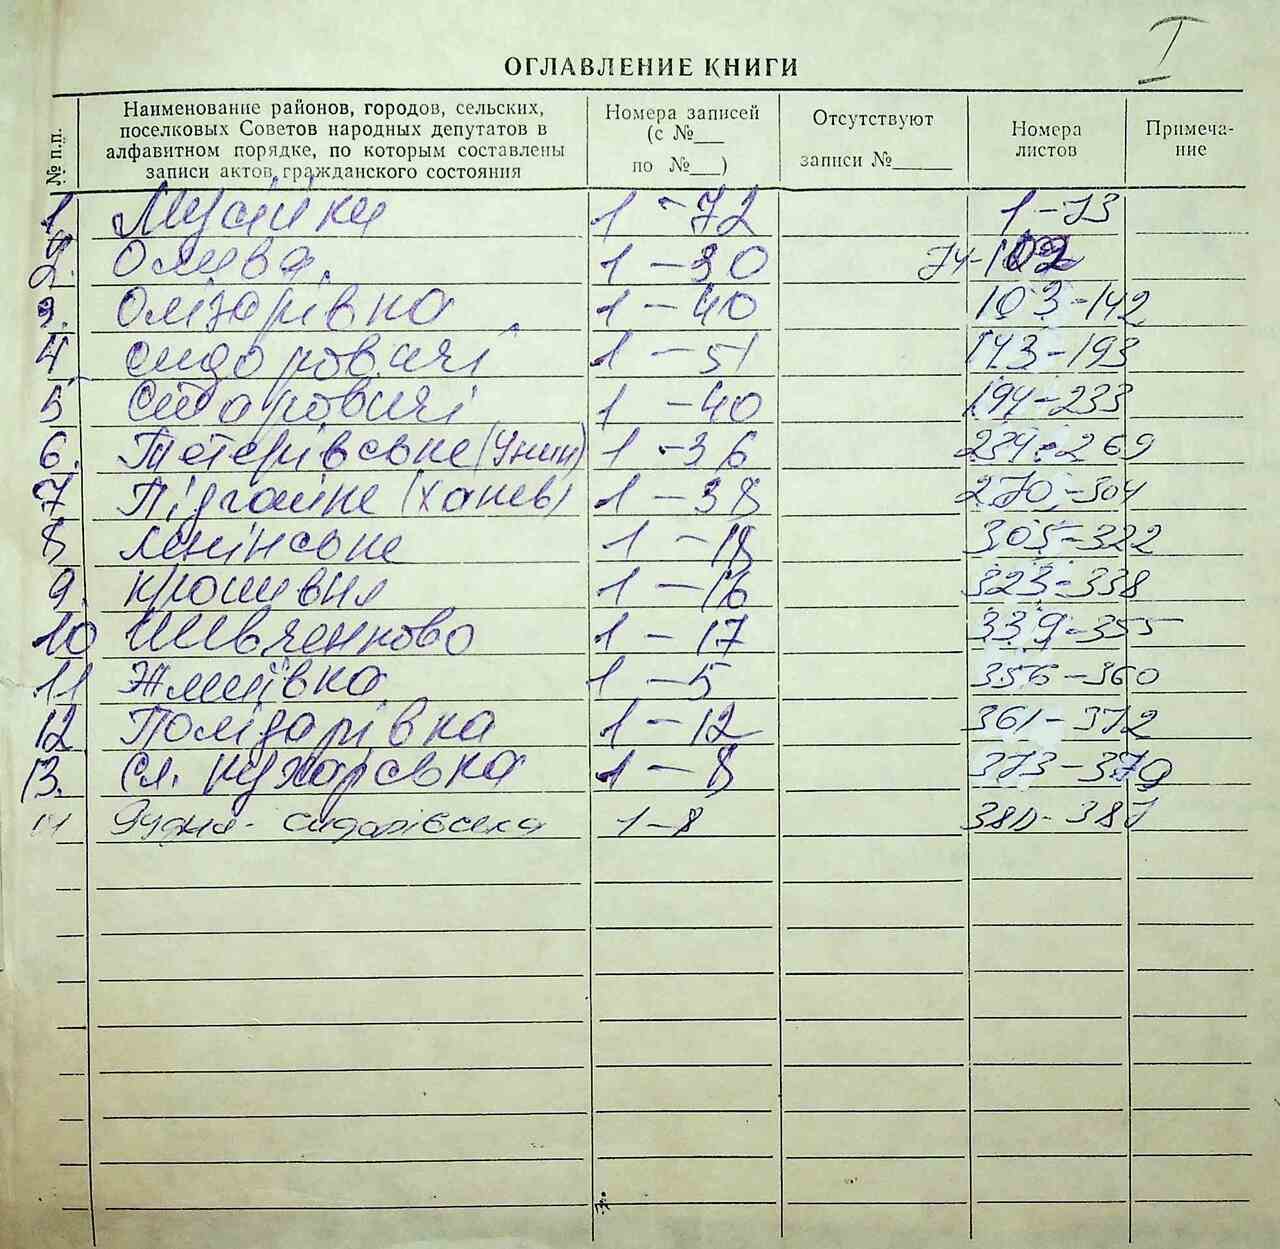 I
ОГЛАВЛЕНИЕ КНИГИ
№ п.п. Наименование районов, городов, сельских, поселковых Советов народных депутатов в алфавитном порядке, по которым составлены записи актов гражданского состояния Номера записей (с №___ по №___) Отсутствуют записи №______ Номера листов Примечание
1. Мусійки 1 - 72 1 - 73
2. Олива. 1 - 30 74-102
3. Олізарівка 1 - 40 103-142
4 Сидоровичі 1 - 51 143-193
5 Ставровичі 1 - 40 194-233
6. Тетерівське (Унин) 1 - 36 234-269
7 Підгайне (Ханев) 1 - 38 270-304
8 Ленінське 1 - 18 305-322
9. Крошивня 1 - 16 323-338
10 Шевченково 1 - 17 339-355
11 Жміївка 1 - 5 356-360
12 Полідарівка 1 - 12 361-372
13. Сл. Кухарська 1 - 8 373-379
14 Рудня-Сидорівська 1-8 380-387